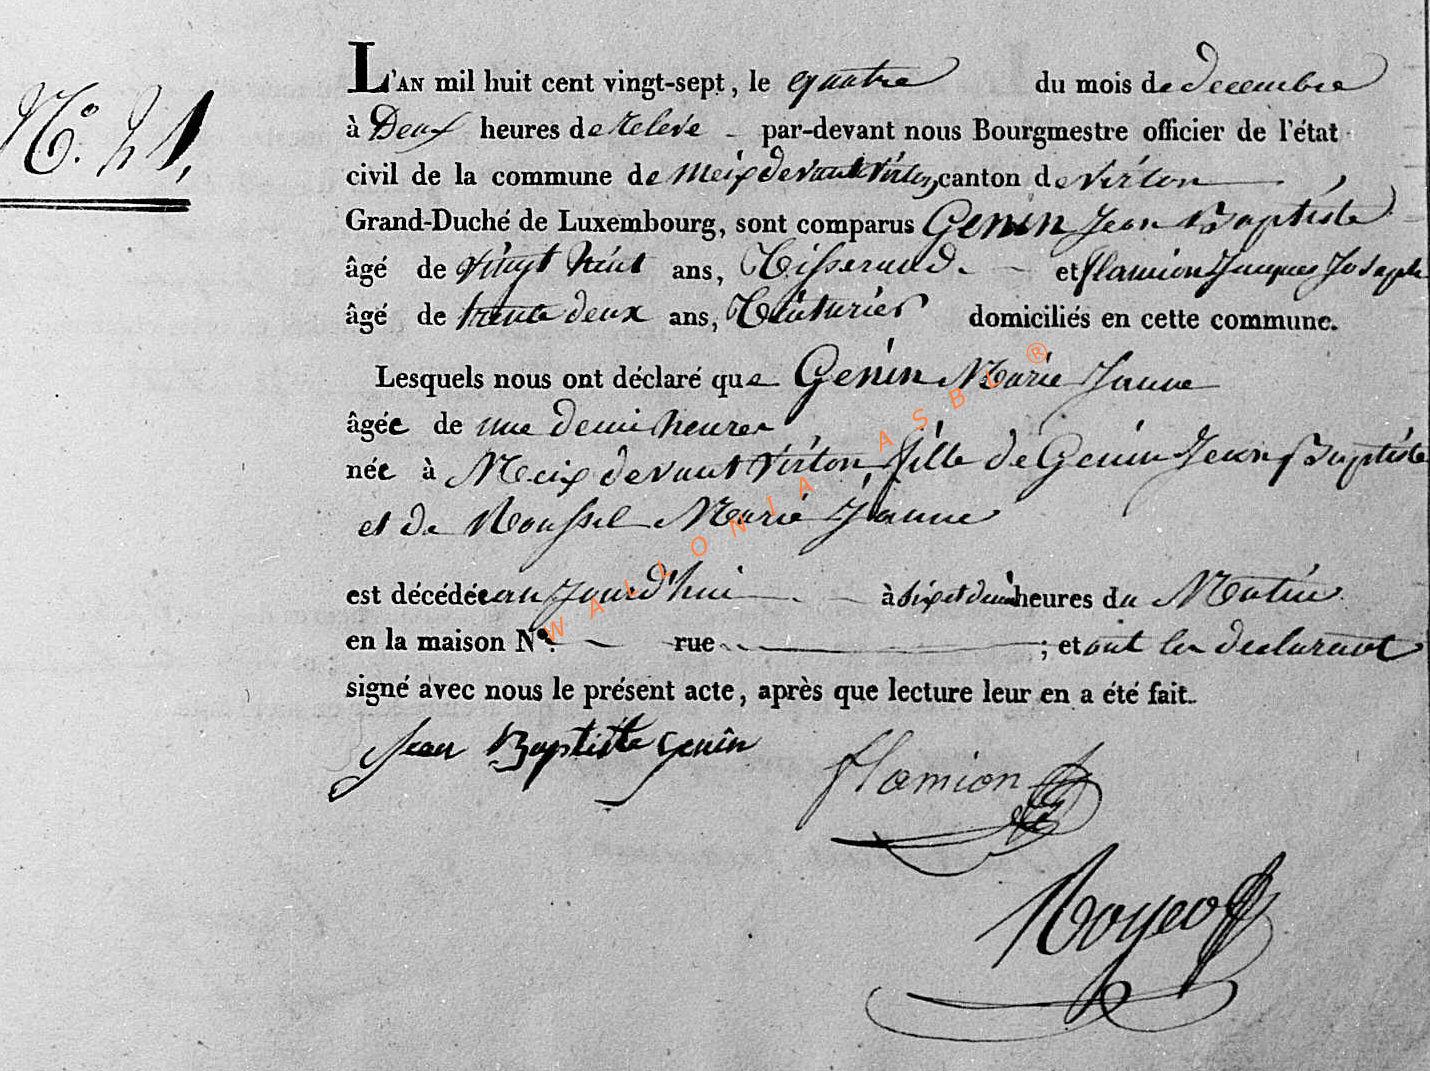 N.° 21,
L'AN mil huit cent vingt-sept, le quatre du mois de decembre
à Deux heures de Relevé par-devant nous Bourgmestre officier de l'état
civil de la commune de Meix devant Virton, canton de Virton
Grand-Duché de Luxembourg, sont comparus Genin Jean Baptiste
âgé de vingt huit ans, Tisserand. et flamion Jacques Joseph
âgé de trente deux ans, Teinturier domiciliés en cette commune.
Lesquels nous ont déclaré que Genin Marie Jeanne
âgée de une demi heure
née à Meix devant Virton, fille de Genin Jean Baptiste
et de Roussel Marie Jeanne
est décédée aujourd'hui à six et demi heures du Matin
en la maison N°. rue ; et ont les declarant
signé avec nous le présent acte, après que lecture leur en a été fait.
Jean Baptiste Genin
flamion
WALLONIA ASBL ®